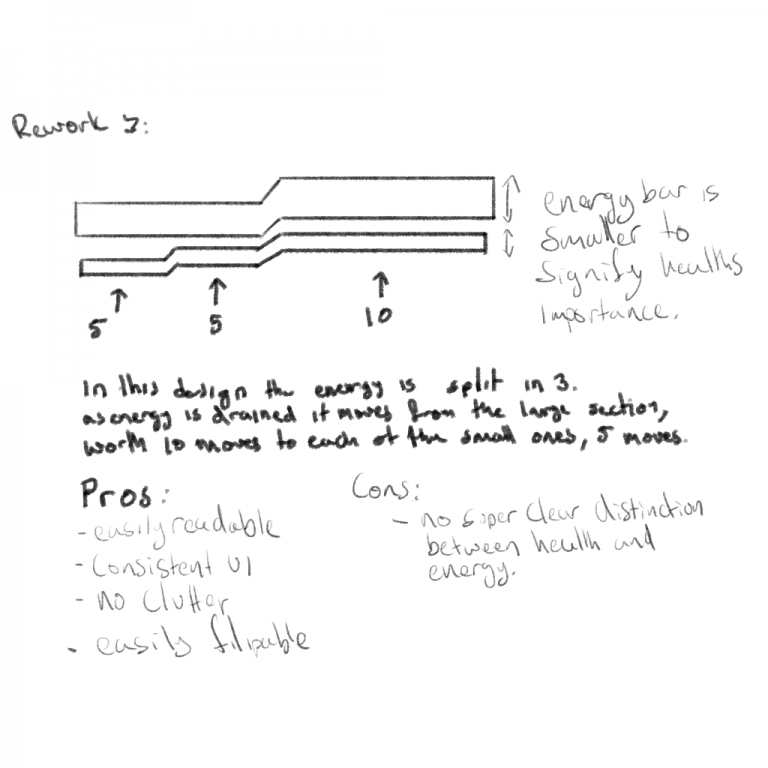 Rework 3:
energy bar is
smaller to
signify healths
importance.
5
5
10
In this design the energy is split in 3.
as energy is drained it moves from the large section,
worth 10 moves to each of the small ones, 5 moves.
Pros:
- easily readable
- Consistent UI
- no Clutter
- easily flipable
Cons:
- no super clear distinction
between health and
energy.